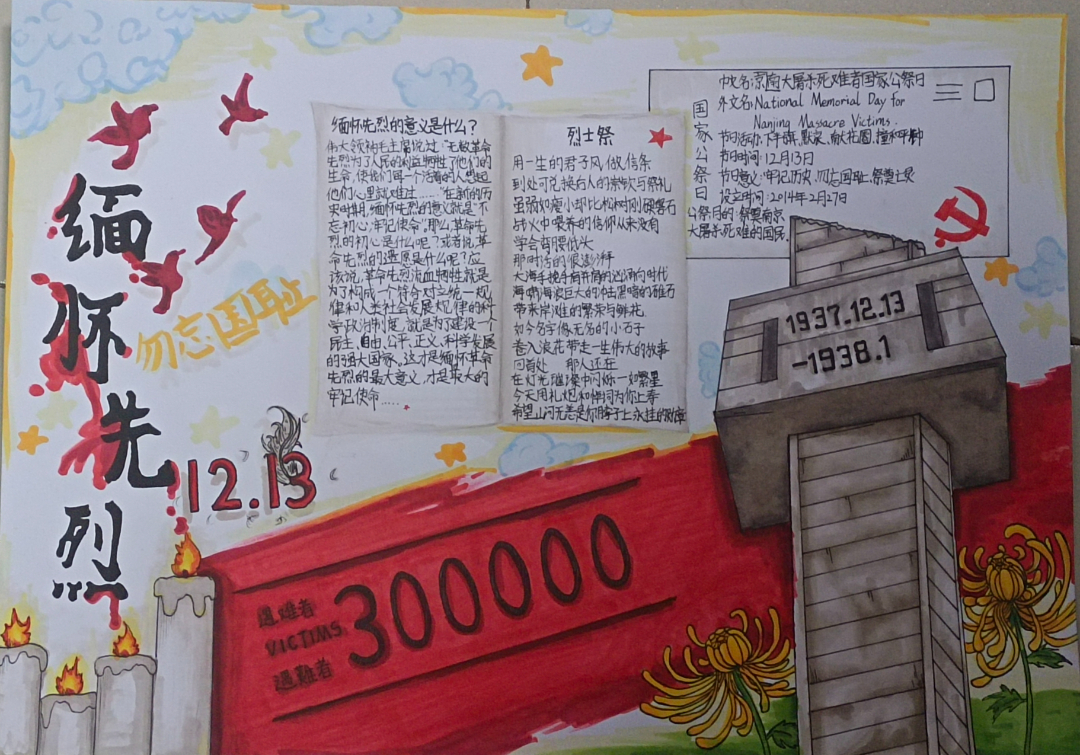 缅怀先烈
勿忘国耻
12.13
缅怀先烈的意义是什么？
伟大领袖毛主席说过：“无数革命
先烈为了人民的利益牺牲了他们的
生命，使我们每一个活着的人想起
他们心里就难过……”在新的历
史时期，缅怀先烈的意义就是“不
忘初心，牢记使命”，那么革命先
烈的初心是什么呢？或者说，革
命先烈的遗愿是什么呢？应
该说，革命先烈流血牺牲就是
为了构成一个符合对立统一规
律和人类社会发展规律的科
学政治制度，就是为了建设一个
民主、自由、公平、正义、科学发展
的强大国家。这才是缅怀革命
先烈的最大意义，才是最大的
牢记使命……
烈士祭
用一生的君子风做信条
到处可兑换后人的崇敬与祭礼
虽弱如瘦小却比松树刚硬磐石
战火中喂养的信仰从来没有
学会弯腰低头
那时活的很澎湃
大海手挽手肩并肩的汹涌向时代
海啸海浪巨大的冲击黑暗的礁石
带来岸滩的繁荣与鲜花
如今名字像无名的小石子
卷入浪花带走一生伟大的故事
回首处 那人还在
在灯光璀璨中闪烁一如繁星
今天用礼炮和悼词为你上寿
希望山河无恙是你脖子上永挂的
国家公祭日
中文名:南京大屠杀死难者国家公祭日
外文名:National Memorial Day for
Nanjing Massacre Victims.
节日活动:下半旗,默哀,献花圈,撞和平钟
节日时间:12月13日
节日意义:牢记历史,勿忘国耻,祭奠
设立时间:2014年2月27日
公祭目的:祭奠南京
大屠杀死难的国民.
1937.12.13
-1938.1
遇难者
VICTIMS
遇難者
300000